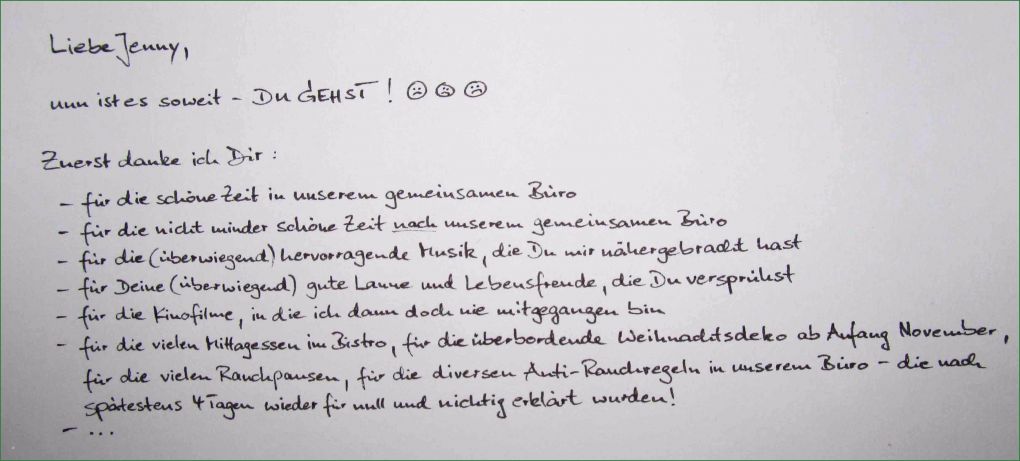 Liebe Jenny,
nun ist es soweit - DU GEHST! ☹ ☹ ☹
Zuerst danke ich Dir:
- für die schöne Zeit in unserem gemeinsamen Büro
- für die nicht minder schöne Zeit nach unserem gemeinsamen Büro
- für die (überwiegend) hervorragende Musik, die Du mir nähergebracht hast
- für Deine (überwiegend) gute Laune und Lebensfreude, die Du versprühst
- für die Kinofilme, in die ich dann doch nie mitgegangen bin
- für die vielen Mittagessen im Bistro, für die überbordende Weihnachtsdeko ab Anfang November,
für die vielen Rauchpausen, für die diversen Anti-Rauchregeln in unserem Büro - die nach
spätestens 4 Tagen wieder für null und nichtig erklärt wurden!
- ...